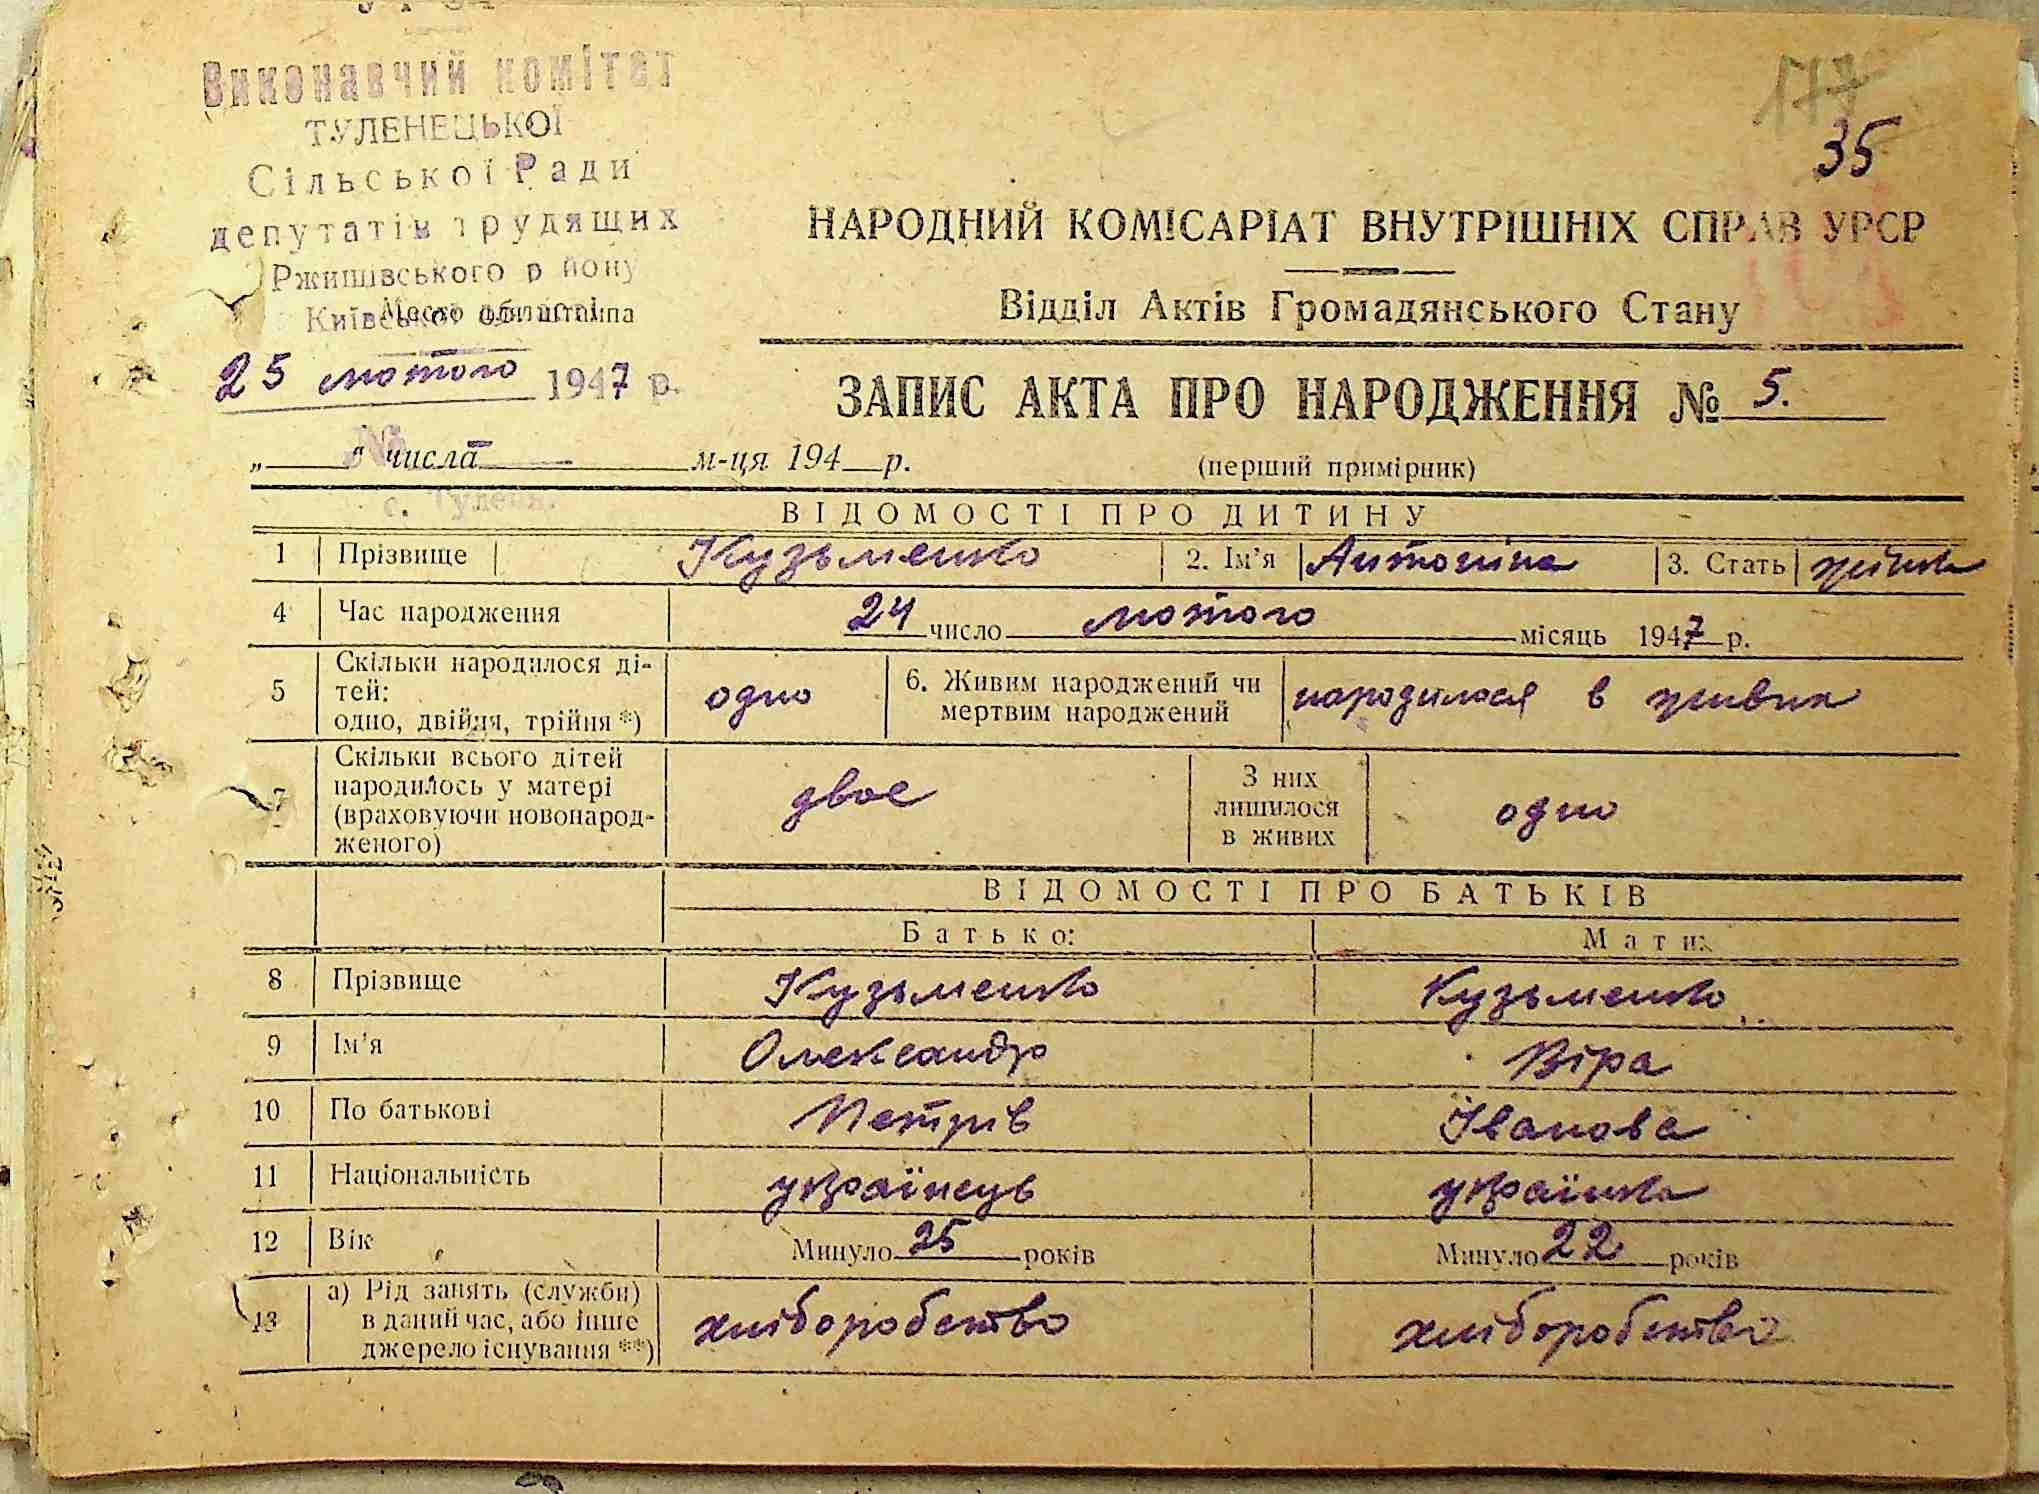 Виконавчий комітет
ТУЛЕНЕЦЬКОЇ
Сільської Ради
депутатів трудящих
Ржищівського району
Київської області
Место штампа
25 лютого 1947 р.
№
„ “ числа м-ця 194 р.
с. Тулен
177
35
НАРОДНИЙ КОМІСАРІАТ ВНУТРІШНІХ СПРАВ УРСР
Відділ Актів Громадянського Стану
ЗАПИС АКТА ПРО НАРОДЖЕННЯ № 5.
(перший примірник)
ВІДОМОСТІ ПРО ДИТИНУ
1 Прізвище Кузьменко 2. Ім’я Антоніна 3. Стать жінка
4 Час народження 24 число лютого місяць 1947 р.
5 Скільки народилося ді-
тей:
одно, двійня, трійня *) одно 6. Живим народжений чи
мертвим народжений народилося в живих
7 Скільки всього дітей
народилось у матері
(враховуючи новонарод-
женого) двоє З них
лишилося
в живих одно
ВІДОМОСТІ ПРО БАТЬКІВ
Батько: Мати:
8 Прізвище Кузьменко Кузьменко
9 Ім’я Олександр Віра
10 По батькові Петрів Іванова
11 Національність українець українка
12 Вік Минуло 25 років Минуло 22 років
13 а) Рід занять (служби)
в даний час, або інше
джерело існування **) хліборобство хліборобство